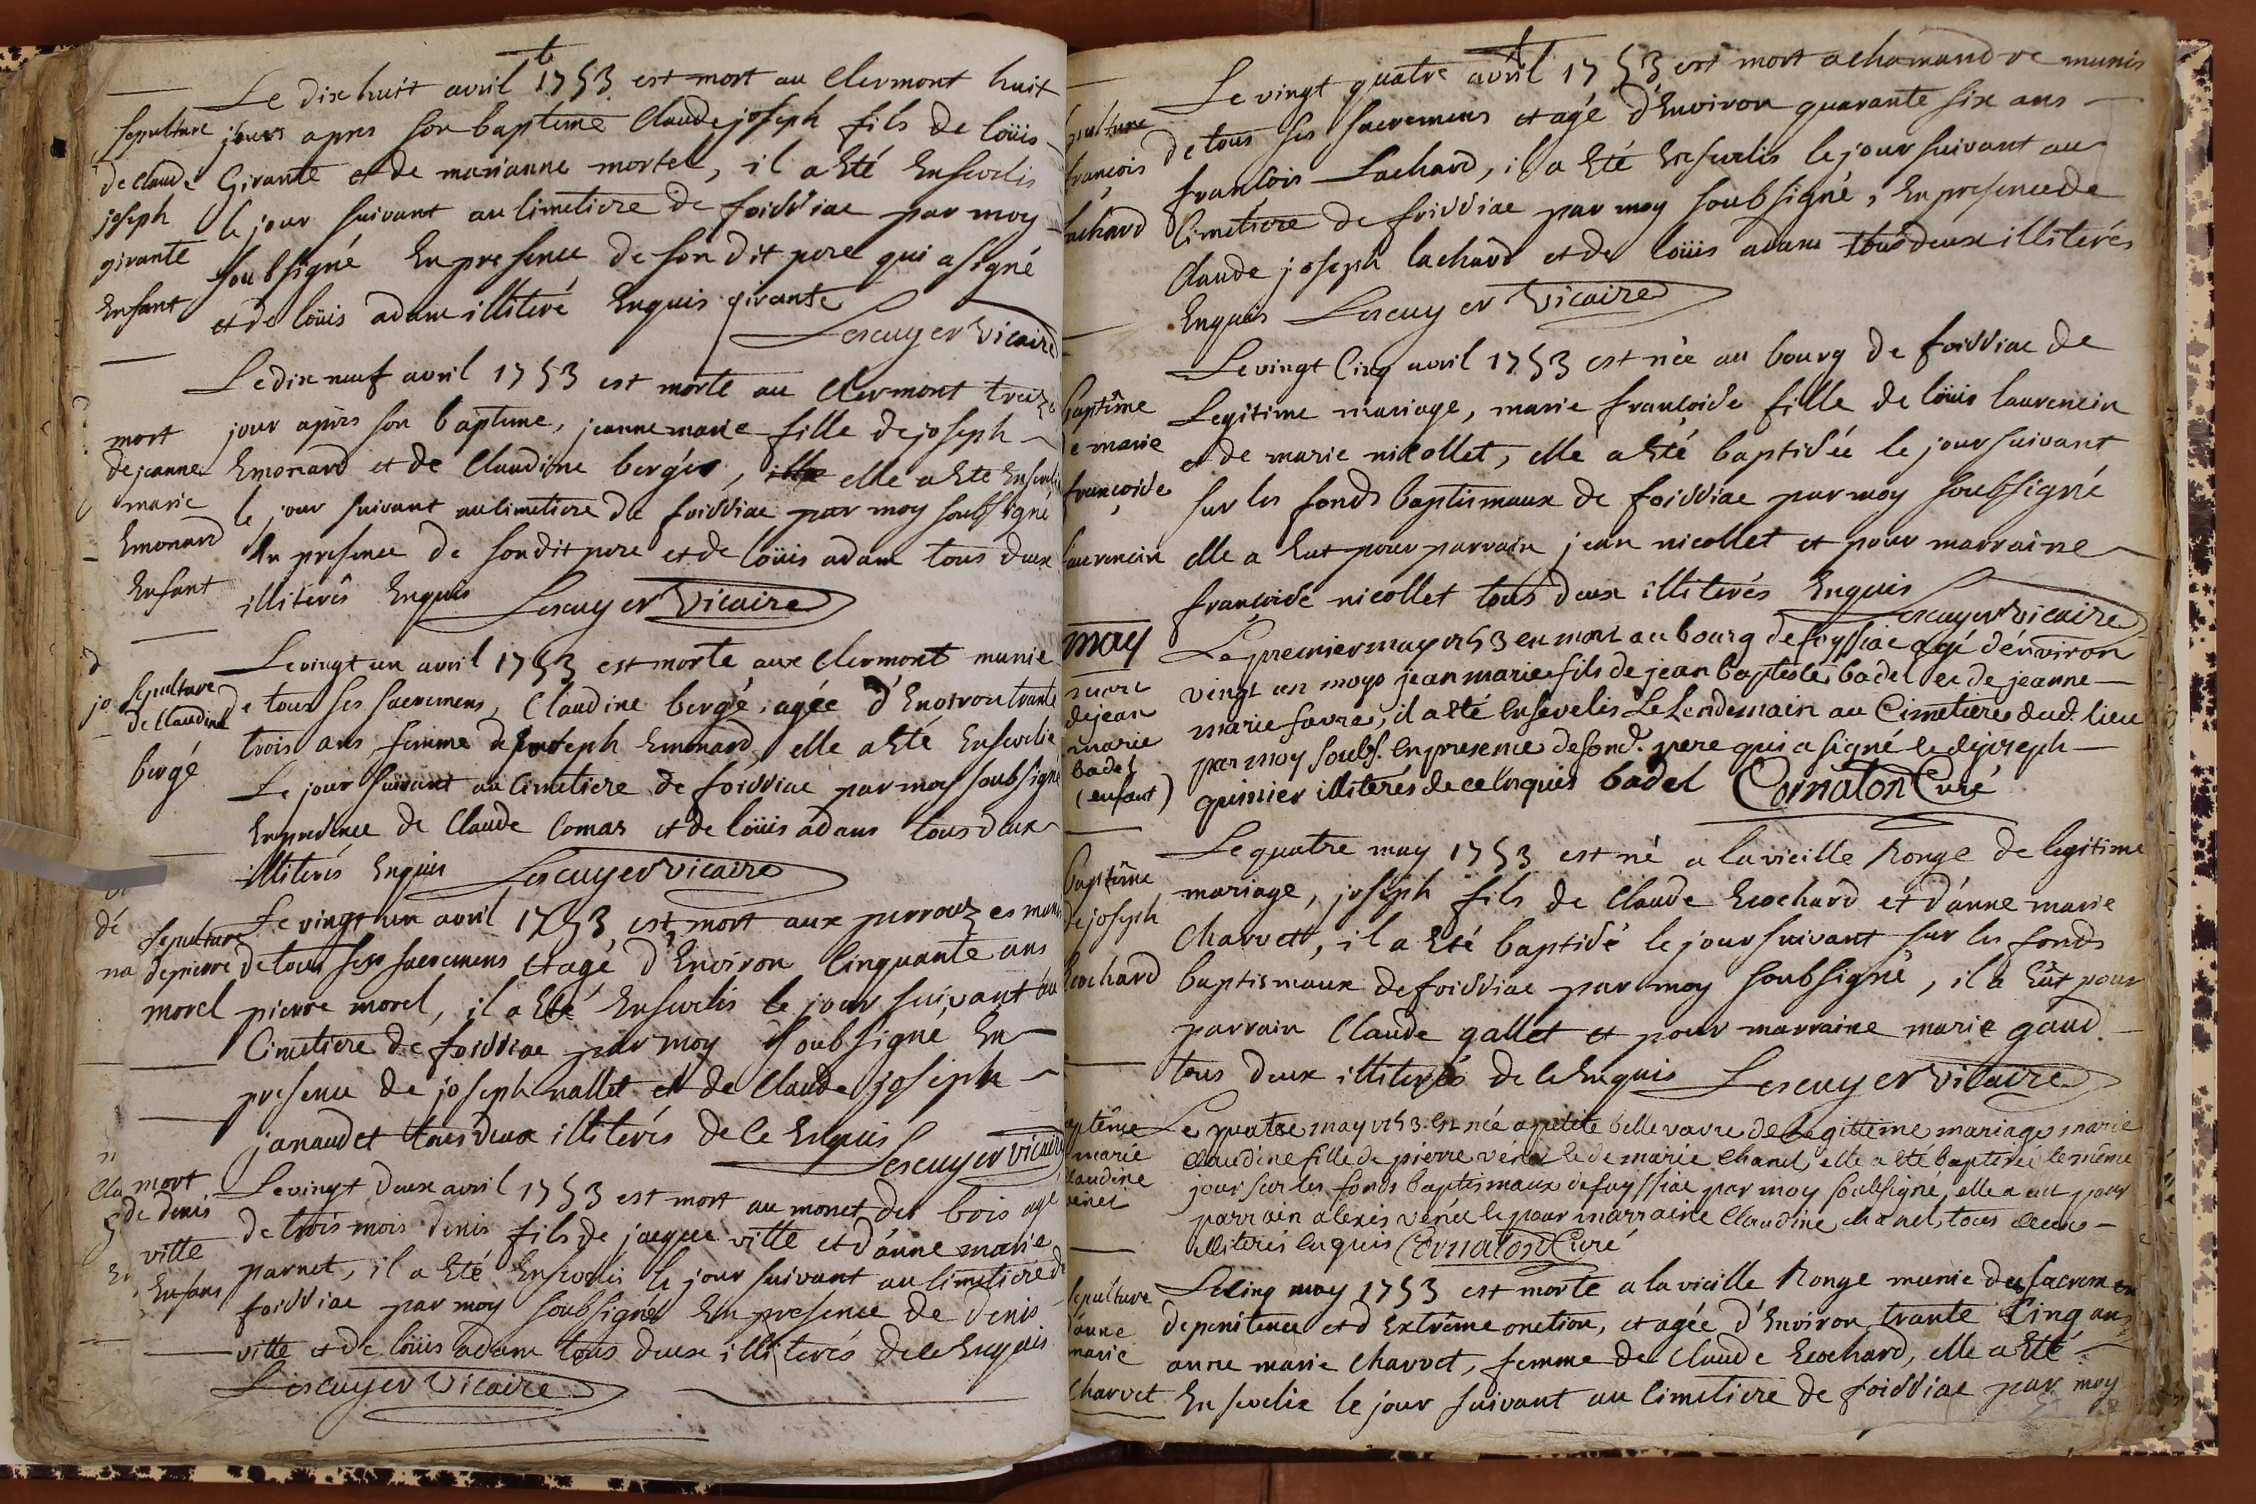 Le dix huit avril 1753 est mort au Clermont huit
Sepulture jours apres son bapteme Claude joseph fils de loüis
de Claude Girante et de marianne mortel, il a Eté Ensevelis
joseph le jour suivant au Cimetiere de foissiac par moy
girante soubsigné En presence de son dit pere qui a signé
Enfant et de loüis adam illiteré Enquis girante
Lescuyer Vicaire
Le dix neuf avril 1753 est morte au Clermont treize
mort jour après son bapteme, jeanne marie fille de joseph
de jeanne Emonard et de Claudine bergér, elle a Eté Ensevelie
marie le jour suivant au Cimetiere de foissiac par moy soubsigné
Emonard En presence de sondit pere et de loüis adam tous deux
Enfant illiterés Enquis Lescuyer Vicaire
Le vingt un avril 1753 est morte aux Clermont munie
Sepulture de tous ses sacremens, Claudine bergé agée d'Environ trante
de Claudine trois ans femme de joseph Emonard, elle a Eté Ensevelie
bergé Le jour suivant au Cimetiere de foissiac par moy soubsigné
En presence de Claude Comas et de loüis adam tous deux
illiterés Enquis Lescuyer vicaire
Le vingt un avril 1753 est mort aux perrouzes muni
Sepulture de tous ses sacremens et agé d'Environ Cinquante ans
de pierre pierre morel, il a Eté Ensevelis le jour suivant au
morel Cimetiere de foissiac par moy soubsigné En
presence de joseph nallet et de Claude joseph
janaudet tous deux illiterés de ce Enquis
Lescuyer vicaire
mort Le vingt deux avril 1753 est mort au monet des bois agé
de denis de trois mois denis fils de jacque ville et d'anne marie
ville parnet, il a Eté Ensevelis le jour suivant au Cimetiere de
Enfans foissiac par moy soubsigné En presence de denis
ville et de loüis adam tous deux illiterés de ce Enquis
Lescuyer Vicaire
Le vingt quatre avril 1753 est mort a chamandre munis
sepulture de tous ses sacremens et agé d'Environ quarante six ans
françois françois Lachard, il a Eté Ensevelis le jour suivant au
Lachard Cimetiere de foissiac par moy soubsigné, En presence de
Claude joseph lachard et de loüis adam tous deux illiterés
Enquis Lescuyer Vicaire
Le vingt Cinq avril 1753 est née au bourg de foissiac de
baptême Legitime mariage, marie françoise fille de loüis laurencin
de marie et de marie nicollet, elle a Eté baptisée le jour suivant
françoise sur les fonds baptismaux de foissiac par moy soubsigné
laurencin elle a Eut pour parrain jean nicollet et pour marraine
françoise nicollet tous deux illiterés Enquis
Lescuyer vicaire
may Le premier may 1753 est mort au bourg de foyssiac agé d'environ
vingt un moys jean marie fils de jean baptiste badel et de jeanne
de jean marie favre, il a eté ensevelis Le Lendemain au Cimetiere dud. lieu
marie par moy soubs. en presence de sond. pere qui a signé et de joseph
badel
(enfant) guinier illiterés de ce enquis badel Cornaton Curé
Le quatre may 1753 est né a la vieille Ronge de legitime
baptême mariage, joseph fils de Claude Ecochard et d'anne marie
de joseph Charvet, il a Eté baptisé le jour suivant sur les fonds
Ecochard baptismaux de foissiac par moy soubsigné, il a Eût pour
parrain Claude gallet et pour marraine marie gaud
tous deux illiterés de ce Enquis Lescuyer vicaire
baptême Le quatre may 1753 est née a petite bellevavre de Legittime mariage marie
marie claudine fille de pierre vénet et de marie chanel, elle a eté baptisée le même
claudine jour sur les fonds baptismaux de foyssiac par moy soubsigné, elle a eut pour
venet parrain alexis vénet et pour marraine claudine chanel, tous deux
illiterés enquis Cornaton Curé
Le Cinq may 1753 est morte a la vieille Ronge munie des sacremens
sepulture de penitence et d'Extrême onction, et agée d'Environ trante Cinq ans
d'anne marie anne marie Charvet, femme de Claude Ecochard, elle a Eté
Charvet Ensevelie le jour suivant au Cimetiere de foissiac par moy